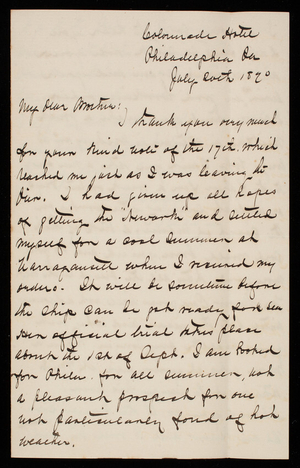 Colonnade Hotel
Philadelphia Pa
July 20th 1890
My Dear Brother:
I thank you very much
for your kind note of the 17th which
reached me just as I was leaving the
I had given up all hopes
of getting the "Newark" and settled
myself for a cool summer at
Narragansett when I received my
orders. It will be sometime before
the ship can be got ready for sea
her official trial takes place
about the 1st of Sept. I am booked
for Phila. for all summer, not
a pleasant prospect for one
not particularly fond of hot
weather.